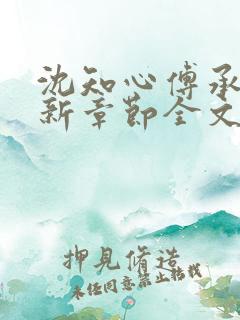 沈知心傅承
新章节全文
押見脩造
未经同意禁止转载